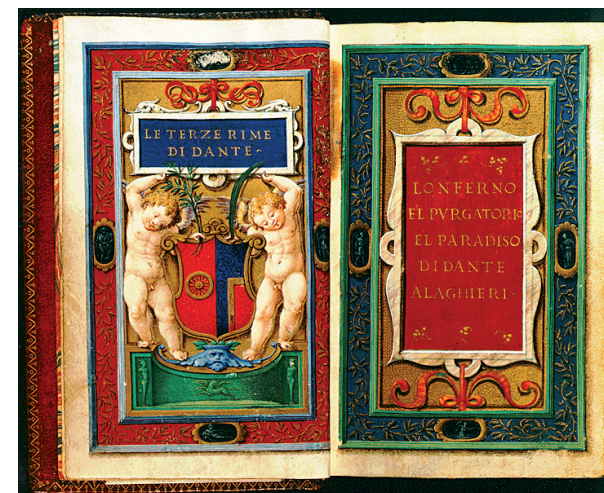 LE TERZE RIME
DI DANTE
LO NFERNO
EL PVRGATORIO
EL PARADISO
DI DANTE
ALAGHIERI ·